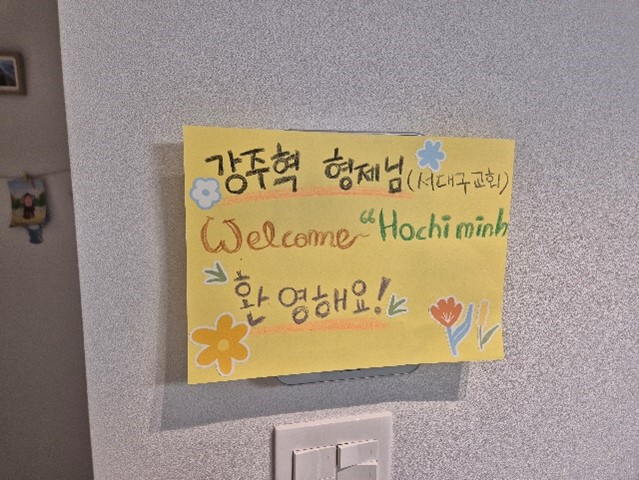 강주혁 형제님 (서대구교회)
Welcome~ "Hochiminh
환영해요!